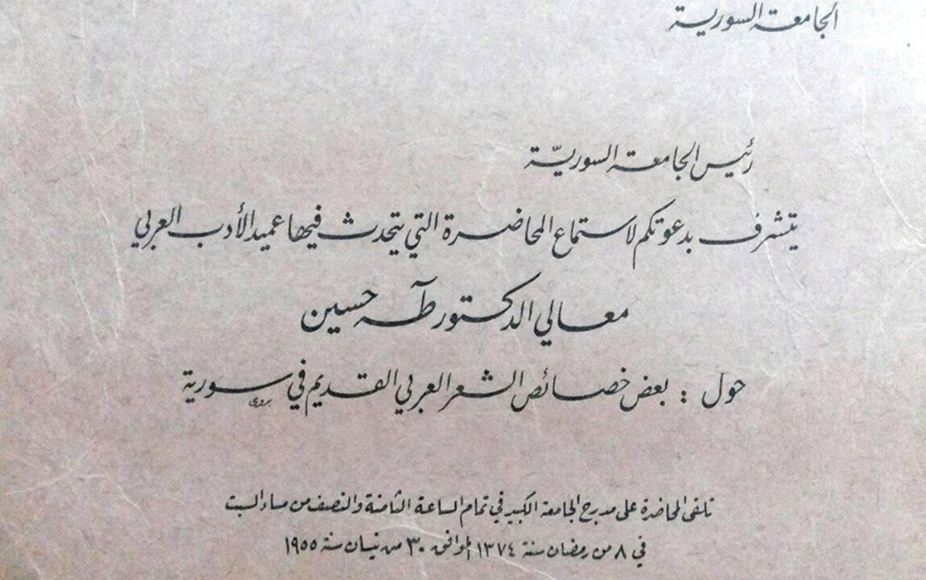 الجامعة السورية
رئيس الجامعة السوريّة
يتشرف بدعوتكم لاستماع المحاضرة التي يتحدث فيها عميد الأدب العربي
معالي الدكتور طه حسين
حول : بعض خصائص الشعر العربي القديم في سورية
تلقى المحاضرة على مدرج الجامعة الكبير في تمام الساعة الثامنة والنصف من مساء السبت
في ٨ من رمضان سنة ١٣٧٤ الموافق ٣٠ من نيسان سنة ١٩٥٥